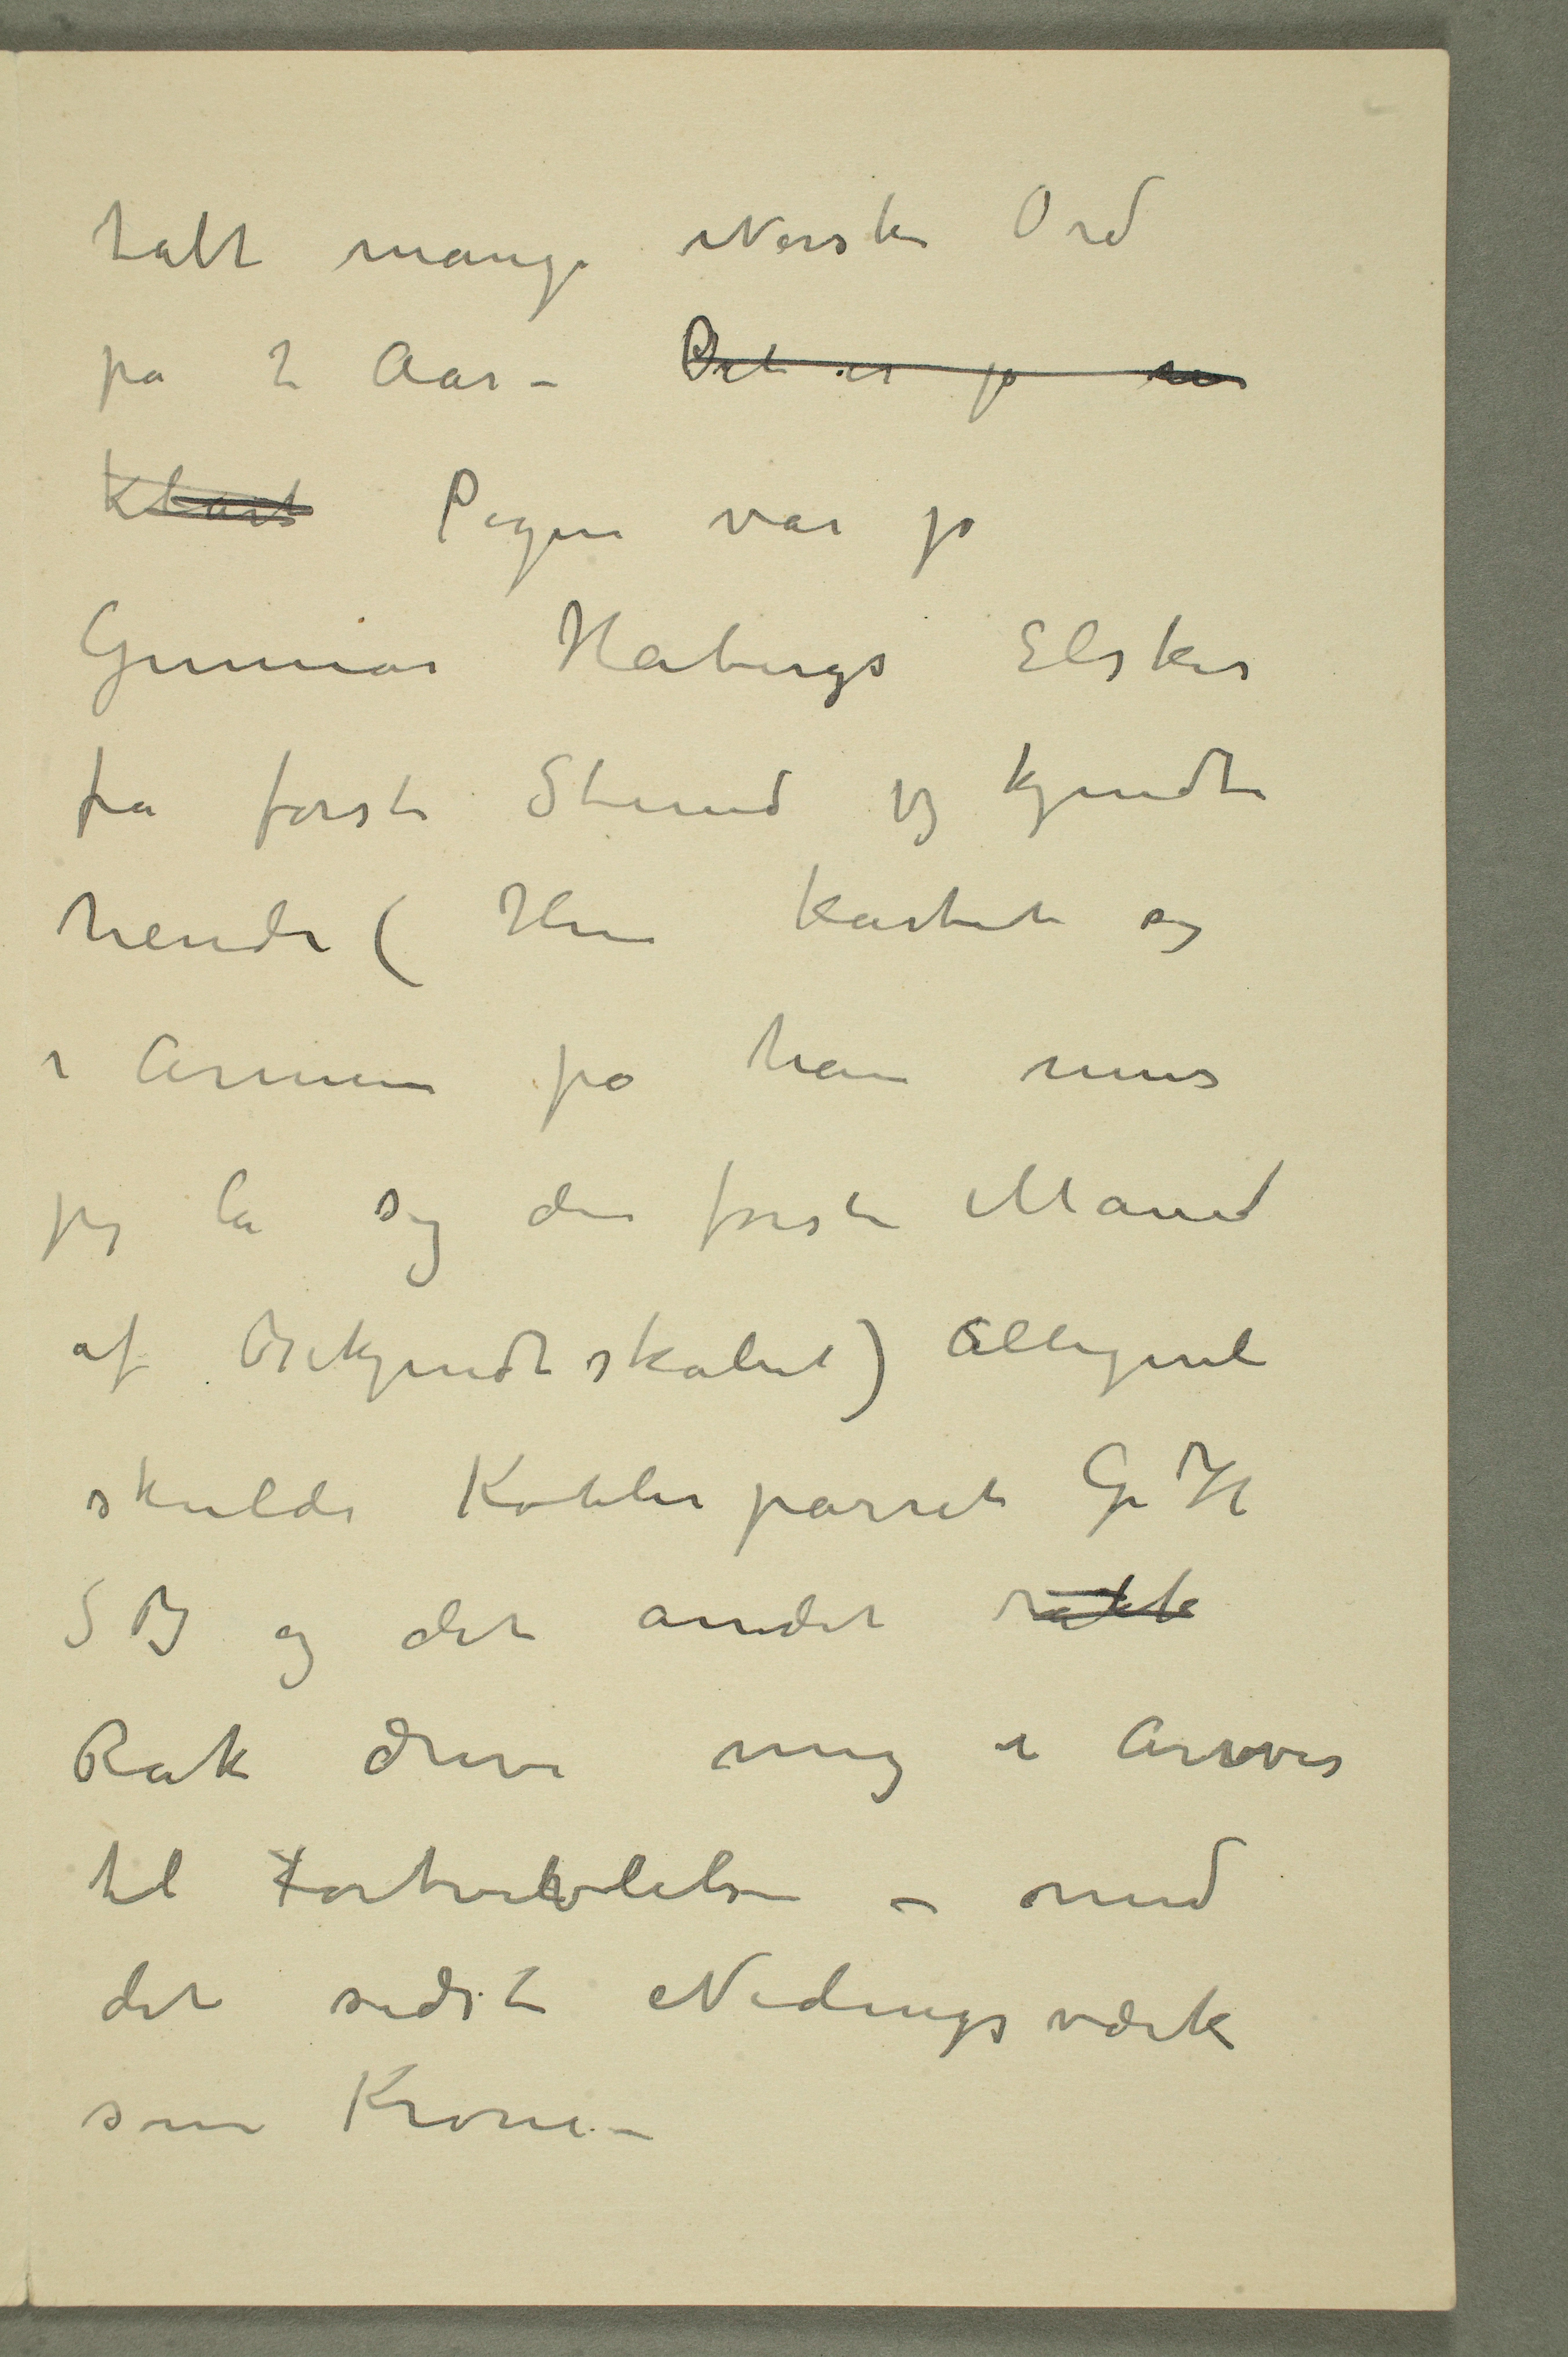 talt mange Norske Ord
på 2 Aar – Det er jo nu
klart Pigen var jo
Gunnar Heibergs Elsker
fra første Stund jeg kjendte
hende ( Hun kastet sig
i Armene på ham mens
jeg lå syg den første Maand
af Bekjendtskabet) Alligevel
skulde Koblerparret G H
S B og det andet rakk
Rak drive mig i Aarevis
til Fortvivlelse – med
det sidste Nidingsværk
som Krone –